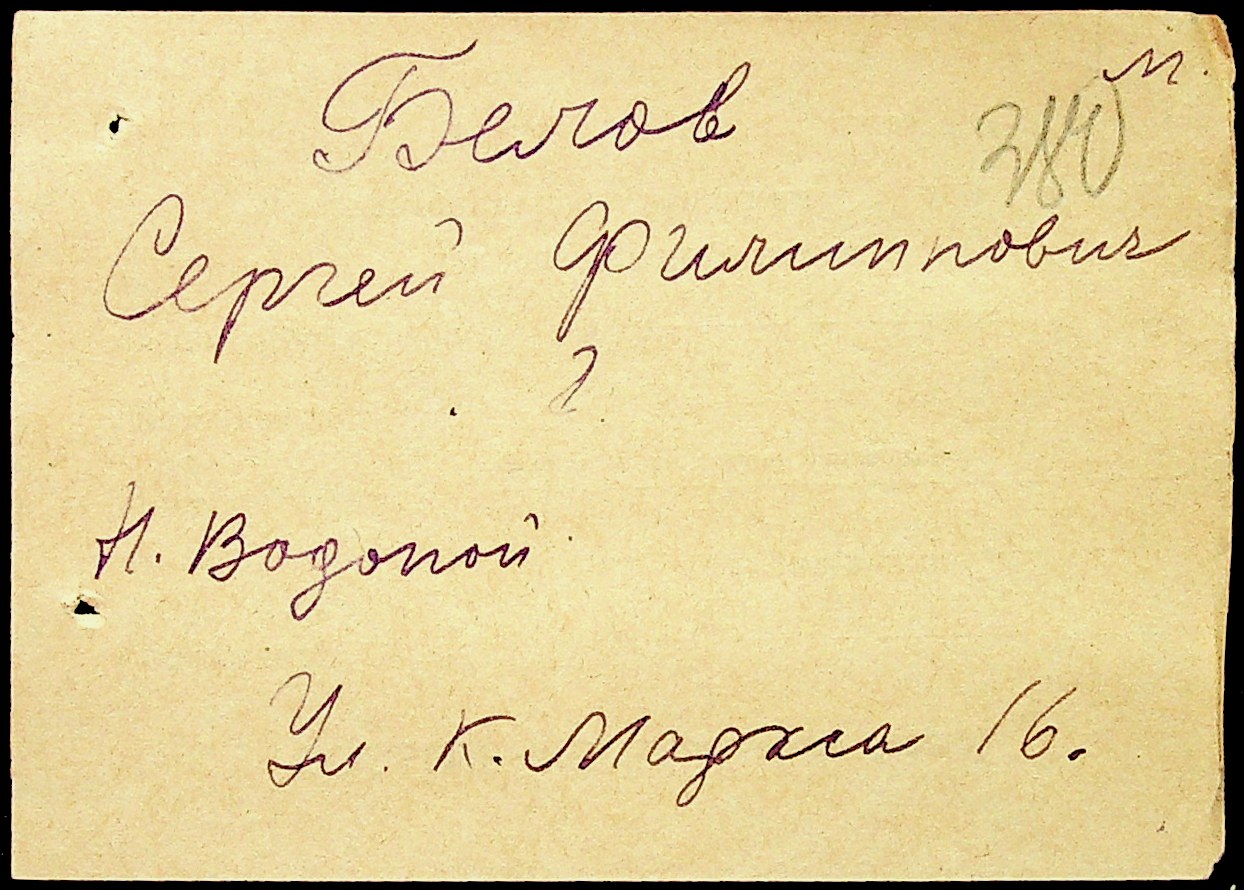 м.
380
Белов
Сергей Филиппович
?
Н. Водопой
Ул. К. Маркса 16.